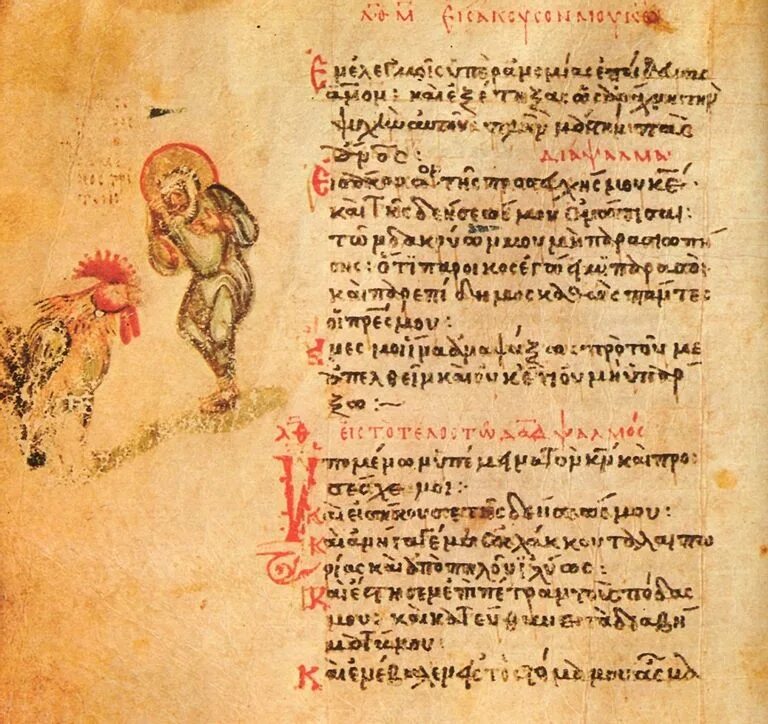 ΕΙΣΑΚΟΥΣΟΝ ΜΟΥ ΚΕ
Ἐν ἐλεγμοῖς ὑπὲρ ἀνομίας ἐπαίδευσας
ἄνον: καὶ ἐξέτηξας ὡς ἀράχνην τὴν
ψυχὴν αὐτοῦ πλὴν μάτην πᾶς
ἄνος: διάψαλμα
Εἰσάκουσον τῆς προσευχῆς μου κε
καὶ τῆς δεήσεώς μου ἐνώτισαι:
τῶν δακρύων μου μὴ παρασιωπή
σης: ὅτι πάροικος ἐγώ εἰμι παρὰ σοὶ
καὶ παρεπίδημος καθὼς πάντες
οἱ πρές μου:
Ἄνες μοι ἵνα ἀναψύξω πρὸ τοῦ με
ἀπελθεῖν καὶ οὐκέτι οὐ μὴ ὑπάρ
ξω:
ΛΘ εἰς τὸ τέλος τῶ δαδ ψαλμός
Ὑπομένων ὑπέμεινα τὸν κν καὶ προ
σέσχε μοι:
Καὶ εἰσήκουσε τῆς δεήσεώς μου:
Καὶ ἀνήγαγέ με ἐκ λάκκου ταλαιπω
ρίας καὶ ἀπὸ πηλοῦ ἰλύος:
Καὶ ἔστησεν ἐπὶ πέτραν τοὺς πόδας
μου: καὶ κατεύθυνε τὰ διαβή
ματά μου
Καὶ ἐνέβαλεν εἰς τὸ στόμα μου ᾆσμα